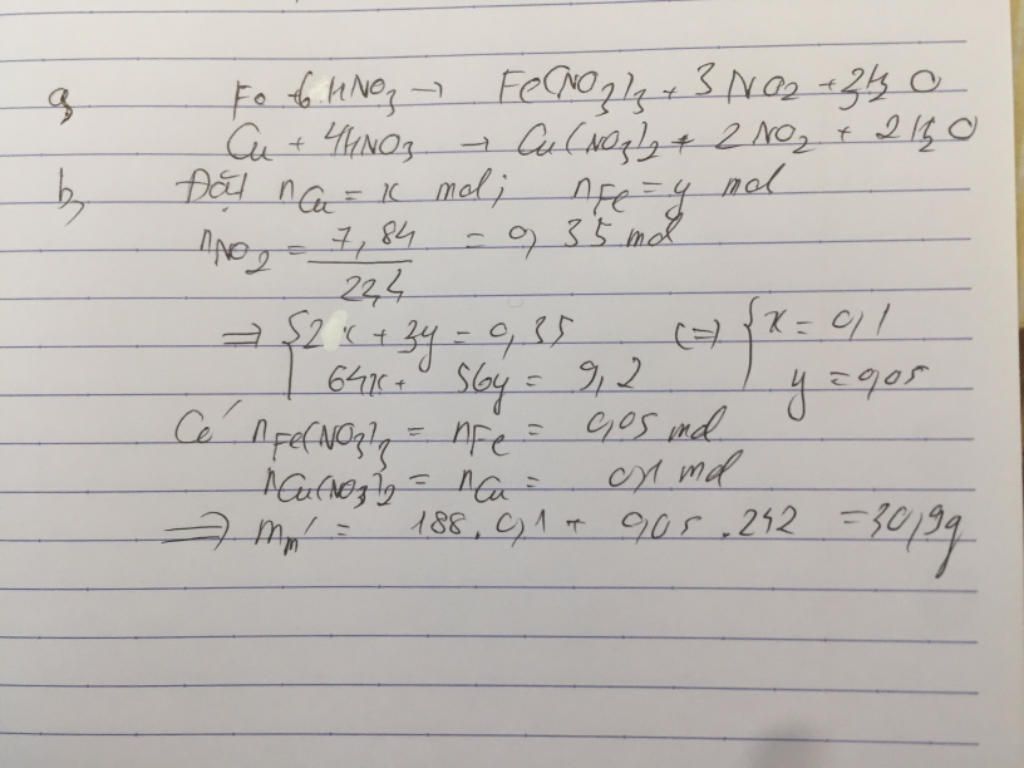 a, Fe + 6 HNO3 → Fe(NO3)3 + 3 NO2 + 3H2O
Cu + 4HNO3 → Cu(NO3)2 + 2 NO2 + 2 H2O
b, Đặt nCu = x mol; nFe = y mol
nNO2 = 7,84 / 22,4 = 0,35 mol
⇒ { 2x + 3y = 0,35 (⇔) { x = 0,1
64x + 56y = 9,2 y = 0,05
Có nFe(NO3)3 = nFe = 0,05 mol
nCu(NO3)2 = nCu = 0,1 mol
⇒ mm' = 188.0,1 + 0,05.242 = 30,9g